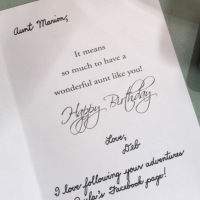 Aunt Marion,
It means
so much to have a
wonderful aunt like you!
Happy Birthday
Love,
Deb
I love following your adventures
Facebook page!